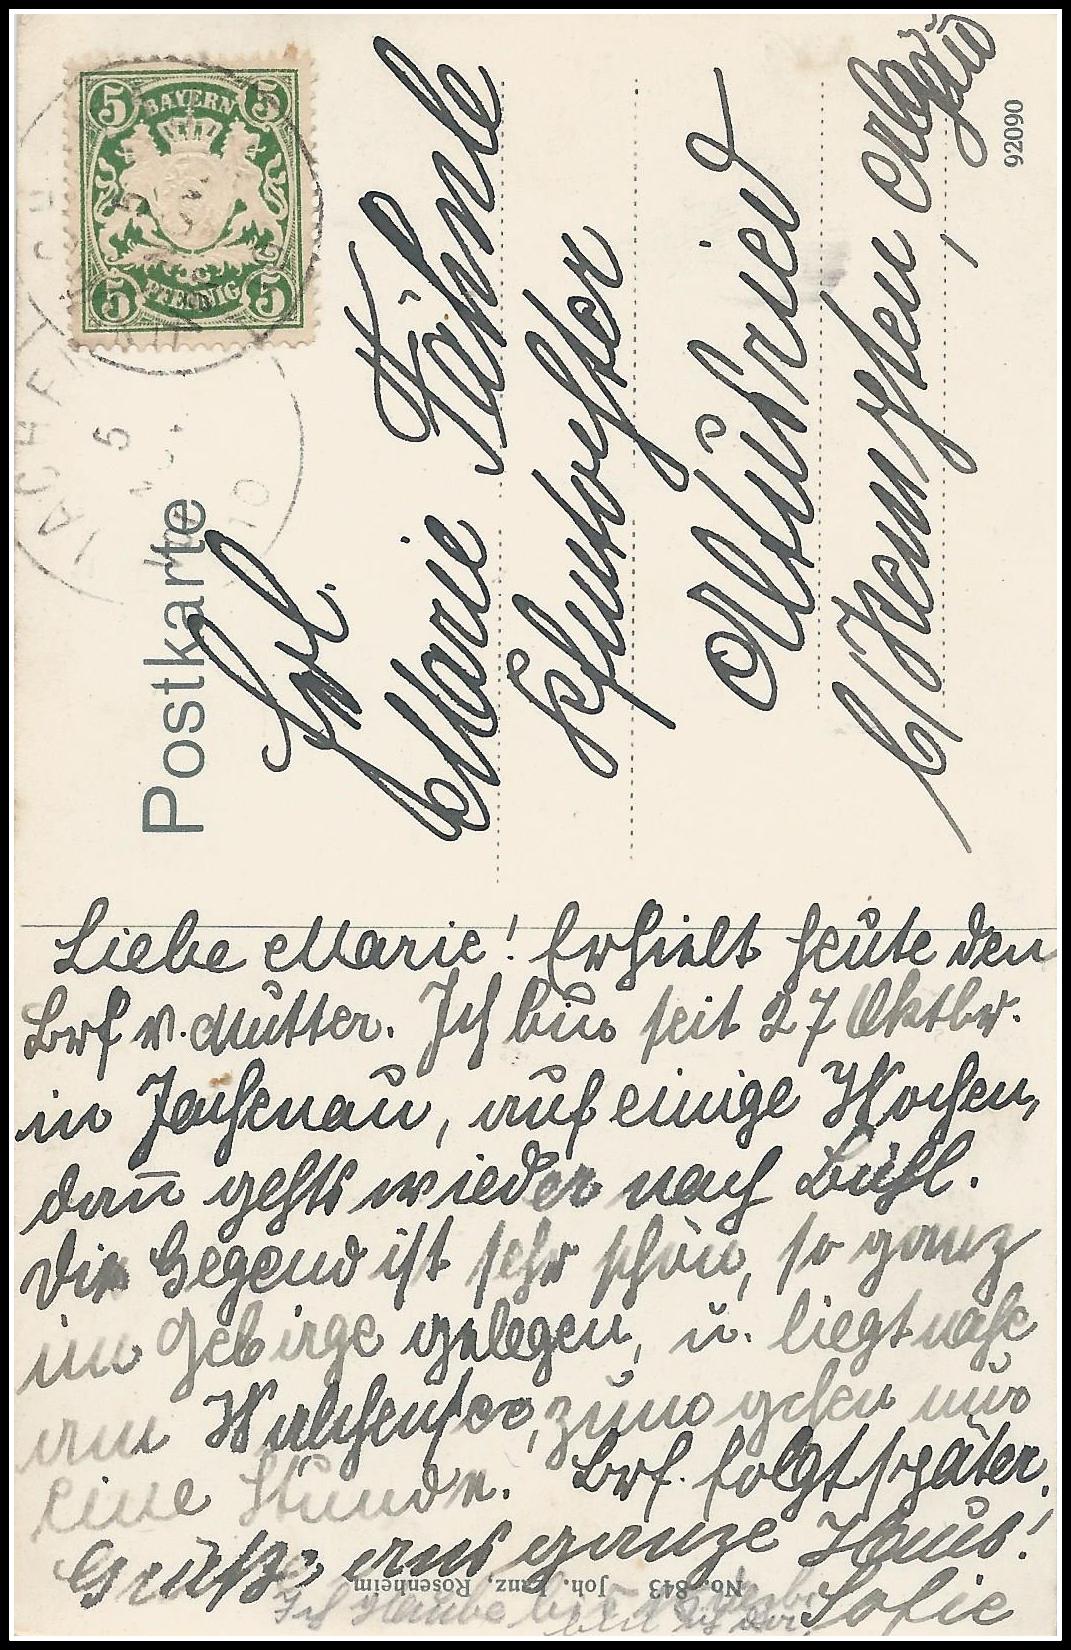 Postkarte
BAYERN
5 5
5 5
PFENNIG
JACHENAU
5
10
Frl.
Marie Fähnle
Altusried
b/Kempten, Allgäu
92090
Liebe Marie! Erhielt heute den
Brf v. Mutter. Ich bin seit 27 Oktbr.
in Jachenau, auf einige Wochen,
dan̄ gehts wieder nach Bühl.
Die Gegend ist sehr schön, so ganz
im Gebirge gelegen, u. liegt nahe
am Walchensee, zum gehen nur
eine Stunde. Brf. folgt später.
Grüße ans ganze Haus!
Sofie
No. 843 Joh. Lanz, Rosenheim